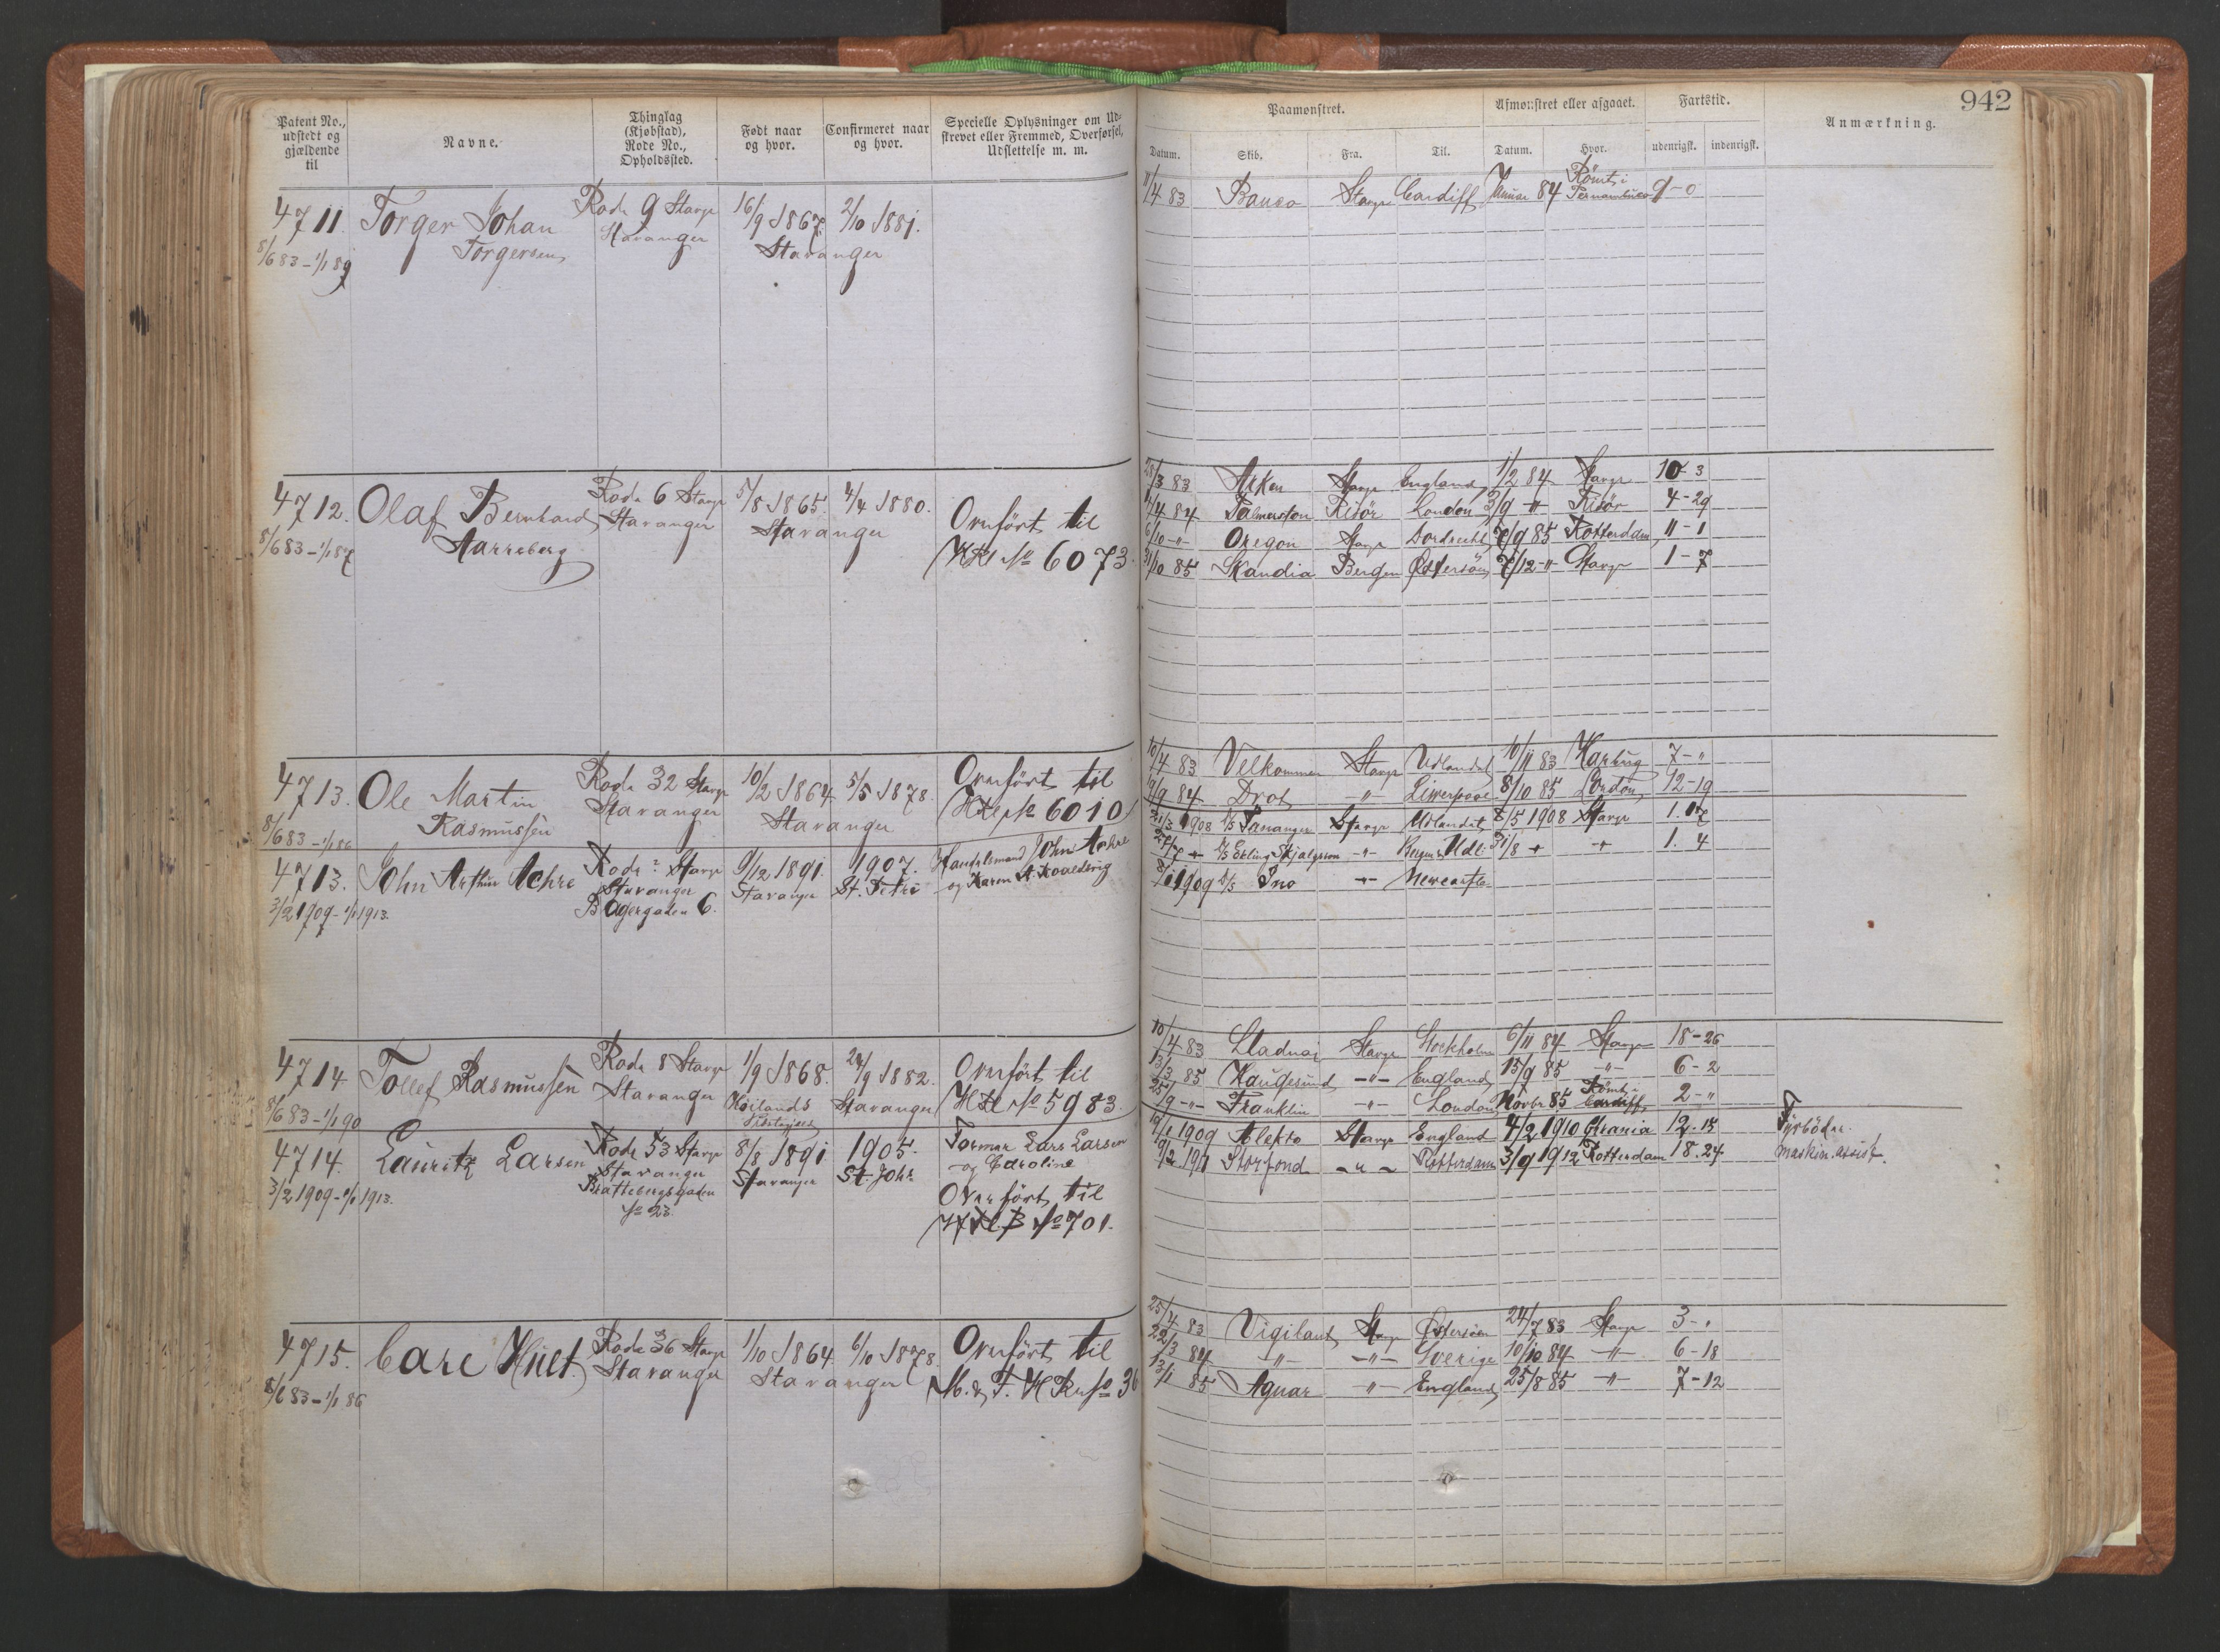 942
Patent No., udstedt og gjældende til
Navne.
Thinglag (Kjøbstad), Rode No., Opholdssted.
Født naar og hvor.
Confirmeret naar og hvor.
Specielle Oplysninger om Udskrevet eller Fremmed, Overførsel, Udslettelse m. m.
Paamønstret.
Afmønstret eller afgaaet.
Fartstid.
Anmærkning.
Datum. Skib. Fra. Til. Datum. Hvor. udenrigsk. indenrigsk.
4711. Torger Johan Rode 9 Stavgr 16/9 1867. 2/10 1881.
8/6 83 - 1/1 89 Torgersen Stavanger Stavanger
11/4 83 Stavgr Cardiff Januar 84 Römt i Pernambuco 9 - 0
4712. Olaf Bernhard Rode 6 Stavgr 5/8 1865. 4/4 1880. Overført til
8/6 83 - 1/1 87 Aarreberg Stavanger Stavanger No 6073
28/3 83 Arken Stavgr England 1/2 84 Stavgr 10 - 3
4/4 84 Palmerston Risör London 3/9 -"- Risör 4 - 29
6/10 -"- Oregon Stavgr Dordrecht 7/9 85 Rotterdam 11 - 1
31/10 85 Skandia Bergen Østersöen 7/12 -"- Stavgr 1 - 7
4713. Ole Martin Rode 32 Stavgr 10/2 1864 5/5 1878. Overført til
8/6 83 - 1/1 86 Rasmussen Stavanger Stavanger No 6010
10/4 83 Velkommen Stavgr Udlandet 10/11 83 Harburg 7 - "
19/9 84 Drot -"- Liverpool 8/10 85 London 12 - 19
4713. John Arthur Achre Rode ? Stavgr 9/12 1891. 1907. Handelsmand John Aachre
3/2 1909 - 1/1 1913. Stavanger Bagergaden 6. Stavanger St. Petri og Karen
21/3 1908 S/S Tananger Stavgr Udlandet 8/5 1908 Stavgr 1. 17
27/7 -"- S/S Erling Skjalgson -"- Bergen Udl. 31/8 -"- -"- 1. 4
1909 S/S Ino -"- Newcastle
4714 Tollef Rasmussen Rode 8 Stavgr 1/9 1868. 24/9 1882. Overført til
8/6 83 - 1/1 90 Stavanger Høilands Præstegjeld Stavanger No 5983.
10/4 83 Stavgr Stockholm 6/11 84 Stavgr 18 - 26
13/3 85 Haugesund -"- England 15/9 85 -"- 6 - 2
25/9 -"- Franklin -"- London Novbr 85 Römt i Cardiff 2 - "
4714. Lauritz Larsen Rode 53 Stavgr 8/8 1891 1905. Formær Lars Larsen
3/2 1909 - 1/1 1913. Stavanger Stavanger St. Johs og Caroline
Brattebergsgaden No 23. Overført til
B No 701.
19/1 1909 Alekto Stavgr England 4/2 1910 Grania 12. 15 Fyrböder.
9/2 1911 Storfond -"- Rotterdam 3/9 1912 Rotterdam 18. 24 maskin. assist.
4715. Carl Hult. Rode 36 Stavgr 1/10 1864 6/10 1878. Overført til
8/6 83 - 1/1 86 Stavanger Stavanger M. & F. H R No 36
25/4 83 Vigilant Stavgr Østersöen 24/7 83 Stavgr 3 - "
22/3 84 -"- -"- Sverige 10/10 84 -"- 6 - 18
13/1 85 Aquar -"- England 25/8 85 -"- 7 - 12